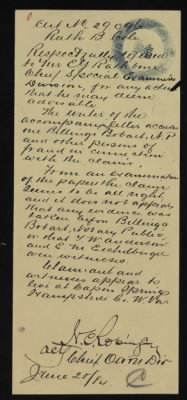 Ruth B Cole
Respectfully referred
to Mr
Chief Special Examiner
Division, for any action
that he may deem
advisable.
The writer of the
accompanying letter accuses
one Billings Bobart, N.P.
and other persons of
fraud in connection
with the claim.
From an examination
of the papers the claim
seems to be all right
and it does not appear
that any evidence was
taken upon Billings
Bobart, Notary Public
or that
and E M Eichelberger
ever witnesses.
Claimant and
witnesses appear to
live at Capon Springs
Hampshire Co. W Va
Chief
June 25/94